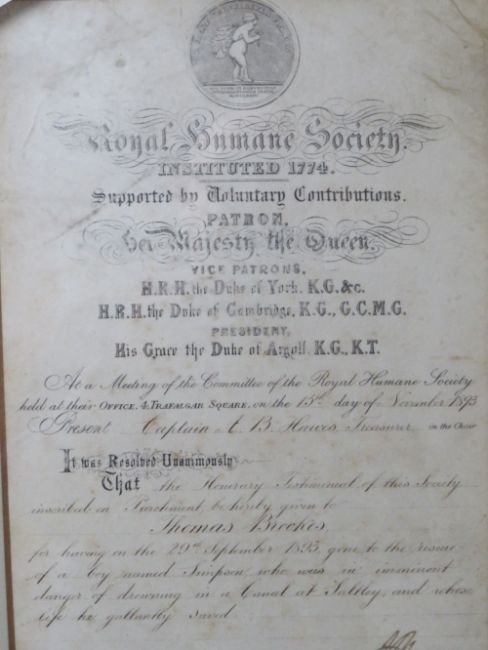 Royal Humane Society.
INSTITUTED 1774.
Supported by Voluntary Contributions.
PATRON,
Her Majesty the Queen.
VICE PATRONS,
H.R.H. the Duke of York, K.G. &c.
H.R.H. the Duke of Cambridge, K.G., G.C.M.G.
PRESIDENT,
His Grace the Duke of Argyll, K.G., K.T.
At a Meeting of the Committee of the Royal Humane Society
held at their OFFICE, 4, TRAFALGAR SQUARE, on the 15th day of November 1893
Present Captain A. B. Hawes Treasurer in the Chair
It was Resolved Unanimously
That the Honorary Testimonial of this Society
inscribed on Parchment, be hereby given to
Thomas
for having on the 29th September 1893, gone to the rescue
of a boy named Simpson, who was in imminent
danger of drowning in a Canal at Saltley, and whose
life he gallantly saved.